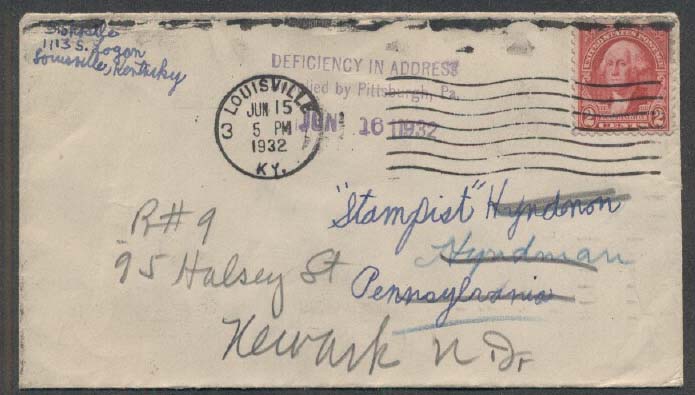 1113 S. Logan
Louisville, Kentucky
DEFICIENCY IN ADDRESS
by Pittsburgh, Pa.
JUN 16 1932
LOUISVILLE
JUN 15
5 PM
1932
KY.
3
UNITED STATES POSTAGE
2 CENTS 2
"Stampist" Hyndmon
Hyndman
Pennsylvania
R#9
95 Halsey St
Newark N. J.